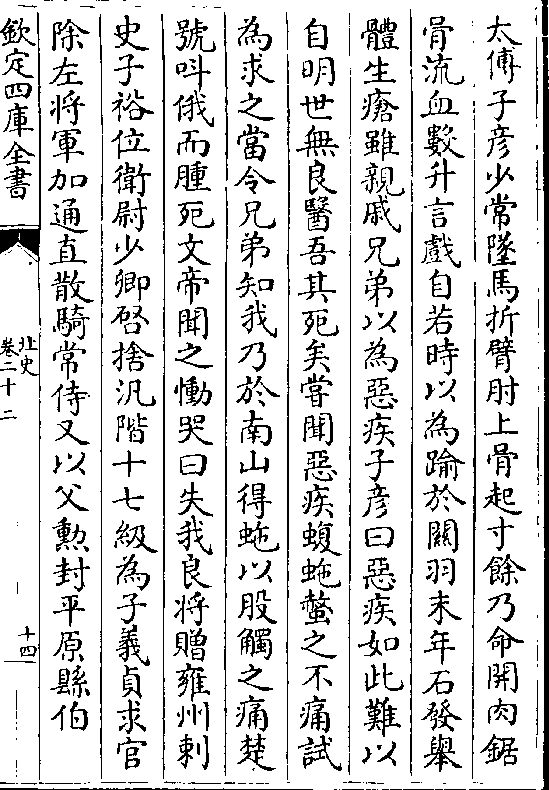 太傅子彦少常墜馬折臂肘上骨起寸餘乃命開肉鋸
骨流血數升言戲自若時以為踰於關羽末年石發舉
體生瘡雖親戚兄弟以為惡疾子彦曰惡疾如此難以
自明世無良醫吾其死矣嘗聞惡疾蝮虵螫之不痛試
為求之當令兄弟知我乃於南山得虵以股觸之痛楚
號呌俄而腫死文帝聞之慟哭曰失我良將贈雍州刺
史子裕位衛尉少卿啓捨汎階十七級為子義貞求官
除左將軍加通直散騎常侍又以父勲封平原縣伯
欽定四庫全書
北史
卷二十二
十四